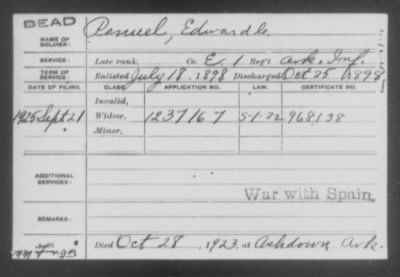 DEAD
NAME OF SOLDIER: Penuel, Edward G.
SERVICE: Late rank, Co. E, 1 Reg't Ark. Inf.
TERM OF SERVICE: Enlisted July 18, 1898 Discharged Oct 25, 1898
DATE OF FILING. CLASS. APPLICATION NO. LAW. CERTIFICATE NO.
Invalid,
1925 Sept 21 Widow, 1237167 S-1-22 968,138
Minor,
ADDITIONAL SERVICES:
War with Spain.
REMARKS:
Died Oct 28, 1923, at Ashdown Ark.